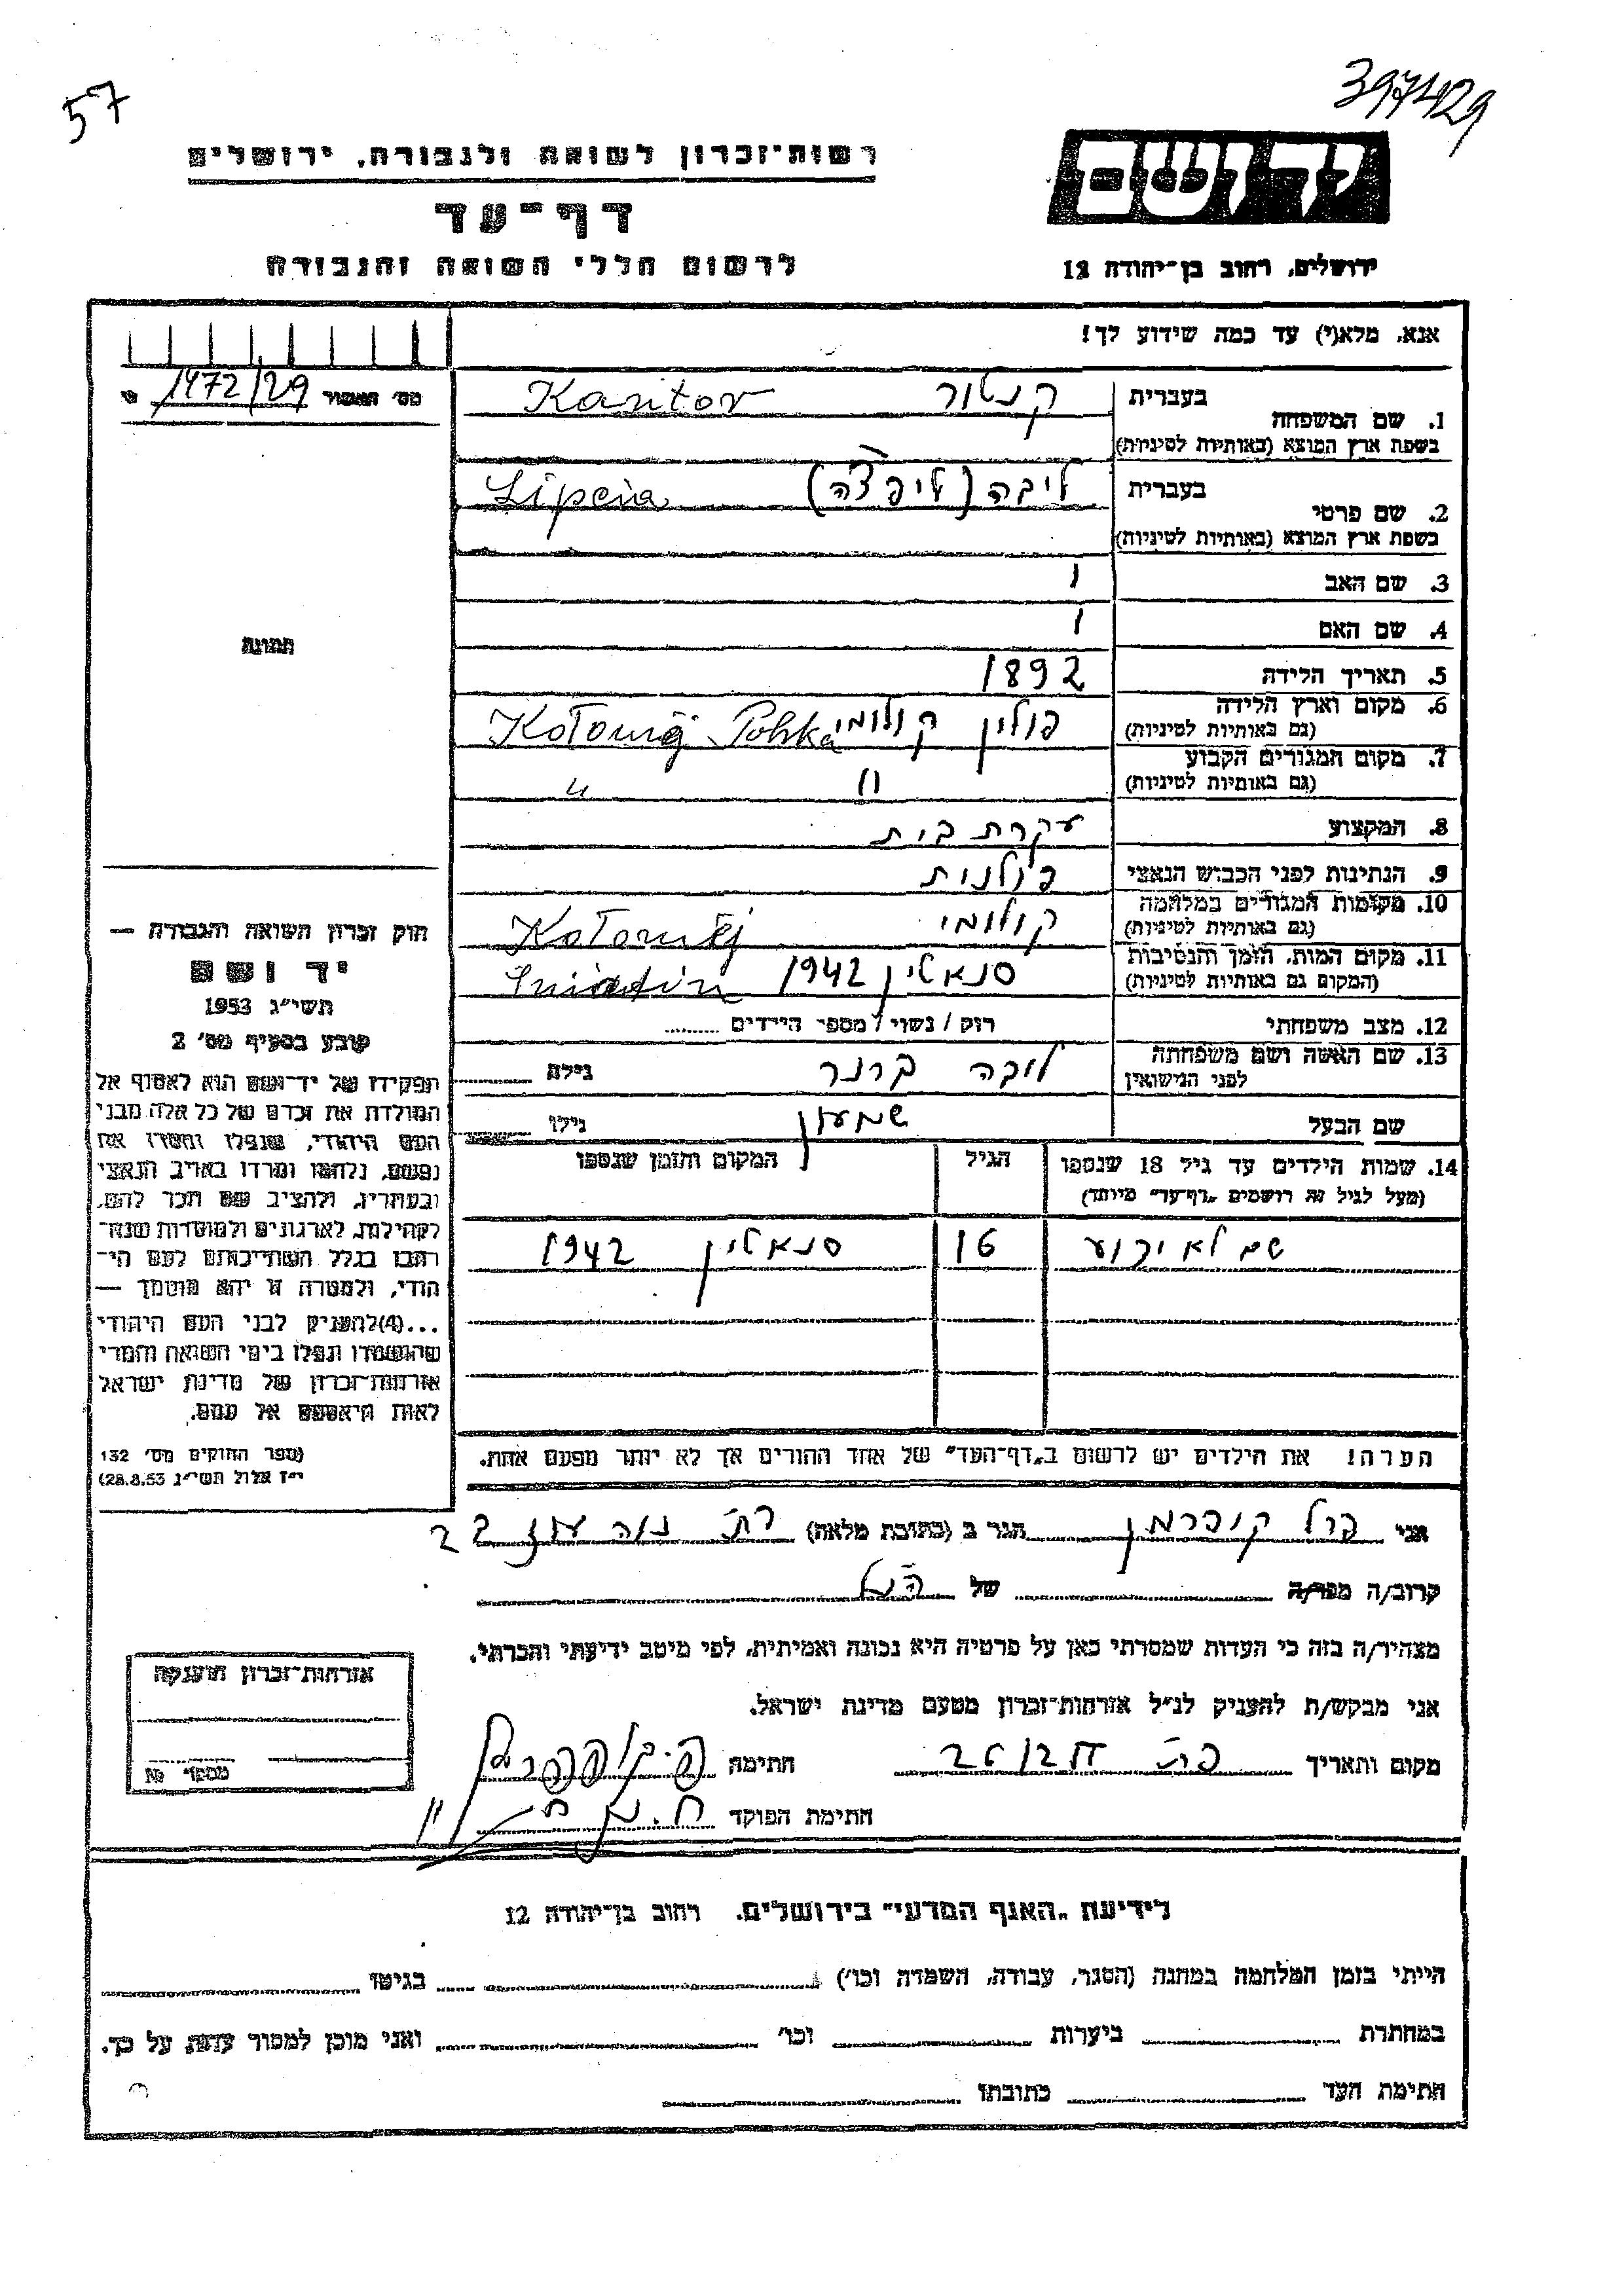 57
397429
רשות־זכרון לשואה ולגבורה, ירושלים
יד ושם
דף־עד
לרשום חללי השואה והגבורה
ירושלים, רחוב בן־יהודה 12
אנא, מלא(י) עד כמה שידוע לך!
מס' האשור 1472/29
1. שם המשפחה
בעברית קנטור Kantor
בשפת ארץ המוצא (באותיות לטיניות)
2. שם פרטי
בעברית ליבה (ליפצה) Lipcia
בשפת ארץ המוצא (באותיות לטיניות)
3. שם האב
4. שם האם
תמונה
5. תאריך הלידה 1892
6. מקום וארץ הלידה (גם באותיות לטיניות) פולין קולומי Kołomyj Polska
7. מקום המגורים הקבוע (גם באותיות לטיניות) " "
8. המקצוע עקרת בית
9. הנתינות לפני הכבוש הנאצי פולנית
10. מקומות המגורים במלחמה (גם באותיות לטיניות) קולומי Kołomyj
11. מקום המות, הזמן והנסיבות (המקום גם באותיות לטיניות) סנאטין 1942 Sniatin
12. מצב משפחתי רווק / נשוי / מספר הילדים
13. שם האשה ושם משפחתה לפני הנישואין ליבה ברנר גילה
שם הבעל שמעון גילו
14. שמות הילדים עד גיל 18 שנספו (מעל לגיל זה רושמים „דף־עד" מיוחד) הגיל המקום והזמן שנספו
שם לא ידוע 16 סנאטין 1942
חוק זכרון השואה והגבורה —
יד ושם
תשי"ג 1953
קובע בסעיף מס' 2
תפקידו של יד־ושם הוא לאסוף אל
המולדת את זכרם של כל אלה מבני
העם היהודי, שנפלו ומסרו את
נפשם, נלחמו ומרדו באויב הנאצי
ובעוזריו, ולהציב שם וזכר להם,
לקהילות, לארגונים ולמוסדות שנח־
רבו בגלל השתייכותם לעם הי־
הודי, ולמטרה זו יהא מוסמך —
...(4)להעניק לבני העם היהודי
שהושמדו ונפלו בימי השואה והמרי
אזרחות־זכרון של מדינת ישראל
לאות היאספם אל עמם.
(ספר החוקים מס' 132
י"ז אלול תשי"ג 28.8.53)
הערה! את הילדים יש לרשום ב„דף־העד" של אחד ההורים אך לא יותר מפעם אחת.
אני פרל קופרמן הגר ב (כתובת מלאה) 22
קרוב/ה מכר/ה של הנ"ל
מצהיר/ה בזה כי העדות שמסרתי כאן על פרטיה היא נכונה ואמיתית, לפי מיטב ידיעתי והכרתי.
אני מבקש/ת להעניק לנ"ל אזרחות־זכרון מטעם מדינת ישראל.
מקום ותאריך חתימה
חתימת הפוקד
אזרחות־זכרון הוענקה
מספר
לידיעת „האגף המדעי" בירושלים, רחוב בן־יהודה 12
הייתי בזמן המלחמה במחנה (הסגר, עבודה, השמדה וכו') בגיטו
במחתרת ביערות וכו' ואני מוכן למסור עדות על כך.
חתימת העד כתובתו